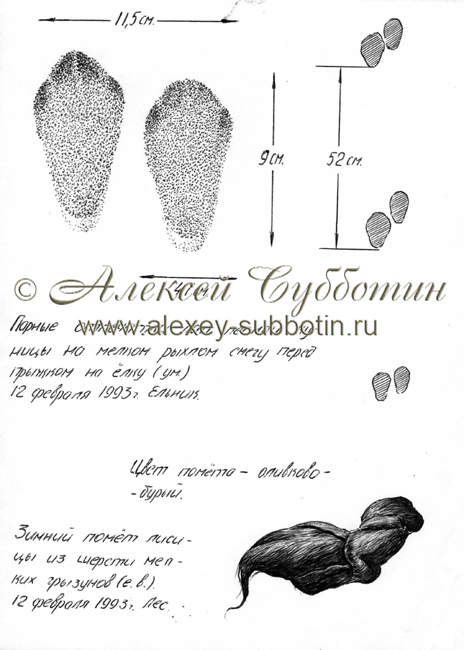 11,5 см.
9 см.
52 см.
© Алексей Субботин
www.alexey-subbotin.ru
Парные
ницы на мелком рыхлом снегу перед
прыжком на ёлку (ум.)
12 февраля 1993 г. Ельник.
Цвет помёта – оливково-
-бурый.
Зимний помёт лиси-
цы из шерсти мел-
ких грызунов (е.в.).
12 февраля 1993 г. Лес.